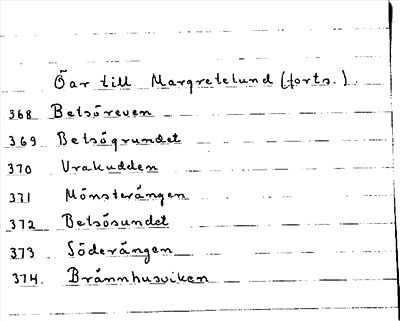 Öar till Margretelund (forts.).
368 Betsöreven
369 Betsögrundet
370 Vrakudden
371 Mönsterängen
372 Betsösundet
373 Söderängen
374. Brännhusviken